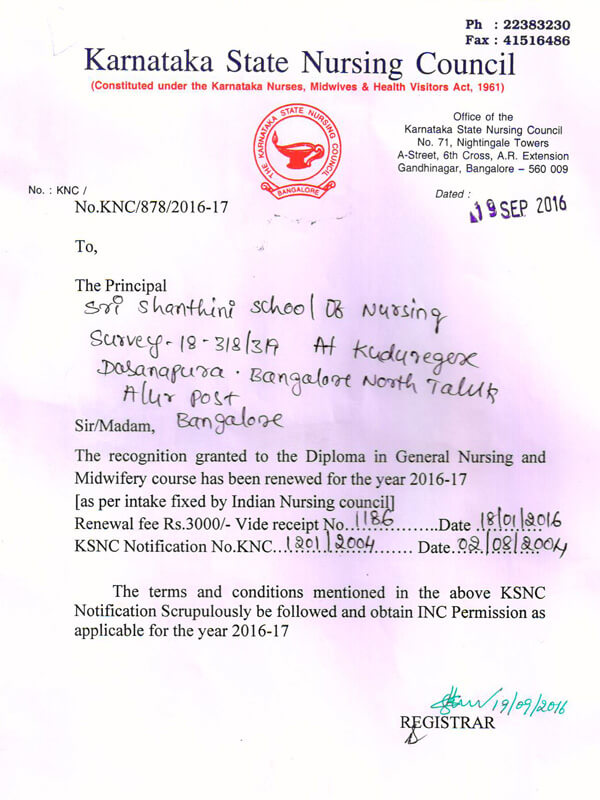 Ph : 22383230
Fax : 41516486
Karnataka State Nursing Council
(Constituted under the Karnataka Nurses, Midwives & Health Visitors Act, 1961)
THE KARNATAKA STATE NURSING COUNCIL
BANGALORE
Office of the
Karnataka State Nursing Council
No. 71, Nightingale Towers
A-Street, 6th Cross, A.R. Extension
Gandhinagar, Bangalore – 560 009
No. : KNC /
No.KNC/878/2016-17
Dated :
19 SEP 2016
To,
The Principal
Sri Shanthini School Of Nursing
Survey-18-318/319 At Kuduregere
Dasanapura. Bangalore North Taluk
Alur Post
Bangalore
Sir/Madam,
The recognition granted to the Diploma in General Nursing and
Midwifery course has been renewed for the year 2016-17
[as per intake fixed by Indian Nursing council]
Renewal fee Rs.3000/- Vide receipt No..1186..........Date 18/01/2016
KSNC Notification No.KNC...1201/2004........ Date..02/08/2004
The terms and conditions mentioned in the above KSNC
Notification Scrupulously be followed and obtain INC Permission as
applicable for the year 2016-17
19/09/2016
REGISTRAR